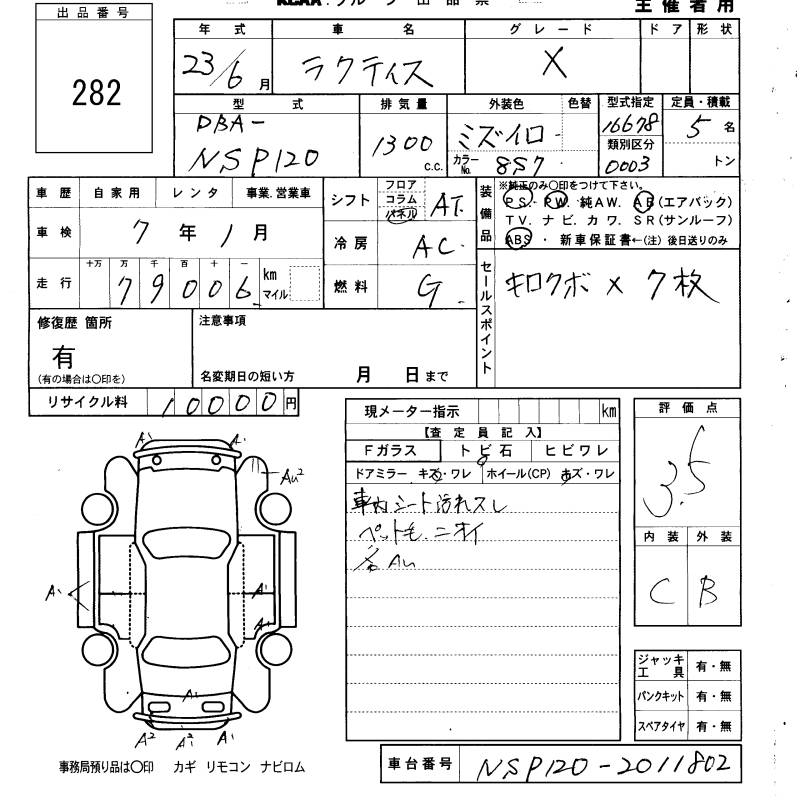 出品番号
282
主催者用
年式 車名 グレード ドア 形状
23/6月 ラクティス X
型式 排気量 外装色 色替 型式指定 定員・積載
DBA-
NSP120
1300 c.c.
ミズイロ
カラーNo. 8S7
16678
類別区分
0003
5名
トン
車歴 自家用 レンタ 事業.営業車
車検 7年1月
走行 十万 万 千 百 十 一
79006 km マイル
シフト フロア コラム パネル AT.
冷房 AC.
燃料 G.
装備品
※純正のみ〇印をつけて下さい。
PS. PW. 純AW. AB(エアバック)
TV. ナビ. カワ. SR(サンルーフ)
ABS・新車保証書←(注)後日送りのみ
セールスポイント
キロクボ×7枚
修復歴 箇所
有
(有の場合は〇印を)
注意事項
名変期日の短い方 月 日まで
リサイクル料 10000円
現メーター指示 km
【査定員記入】
Fガラス トビ石 ヒビワレ
ドアミラー キズ・ワレ ホイール(CP) キズ・ワレ
車内シート汚れスレ
ペット毛.ニオイ
各AU
評価点
3.5
内装 外装
C B
ジャッキ工具 有・無
パンクキット 有・無
スペアタイヤ 有・無
A¹ A¹
AU²
A¹ A¹
A¹
A¹
A² A² A¹
事務局預り品は〇印 カギ リモコン ナビロム
車台番号 NSP120-2011802